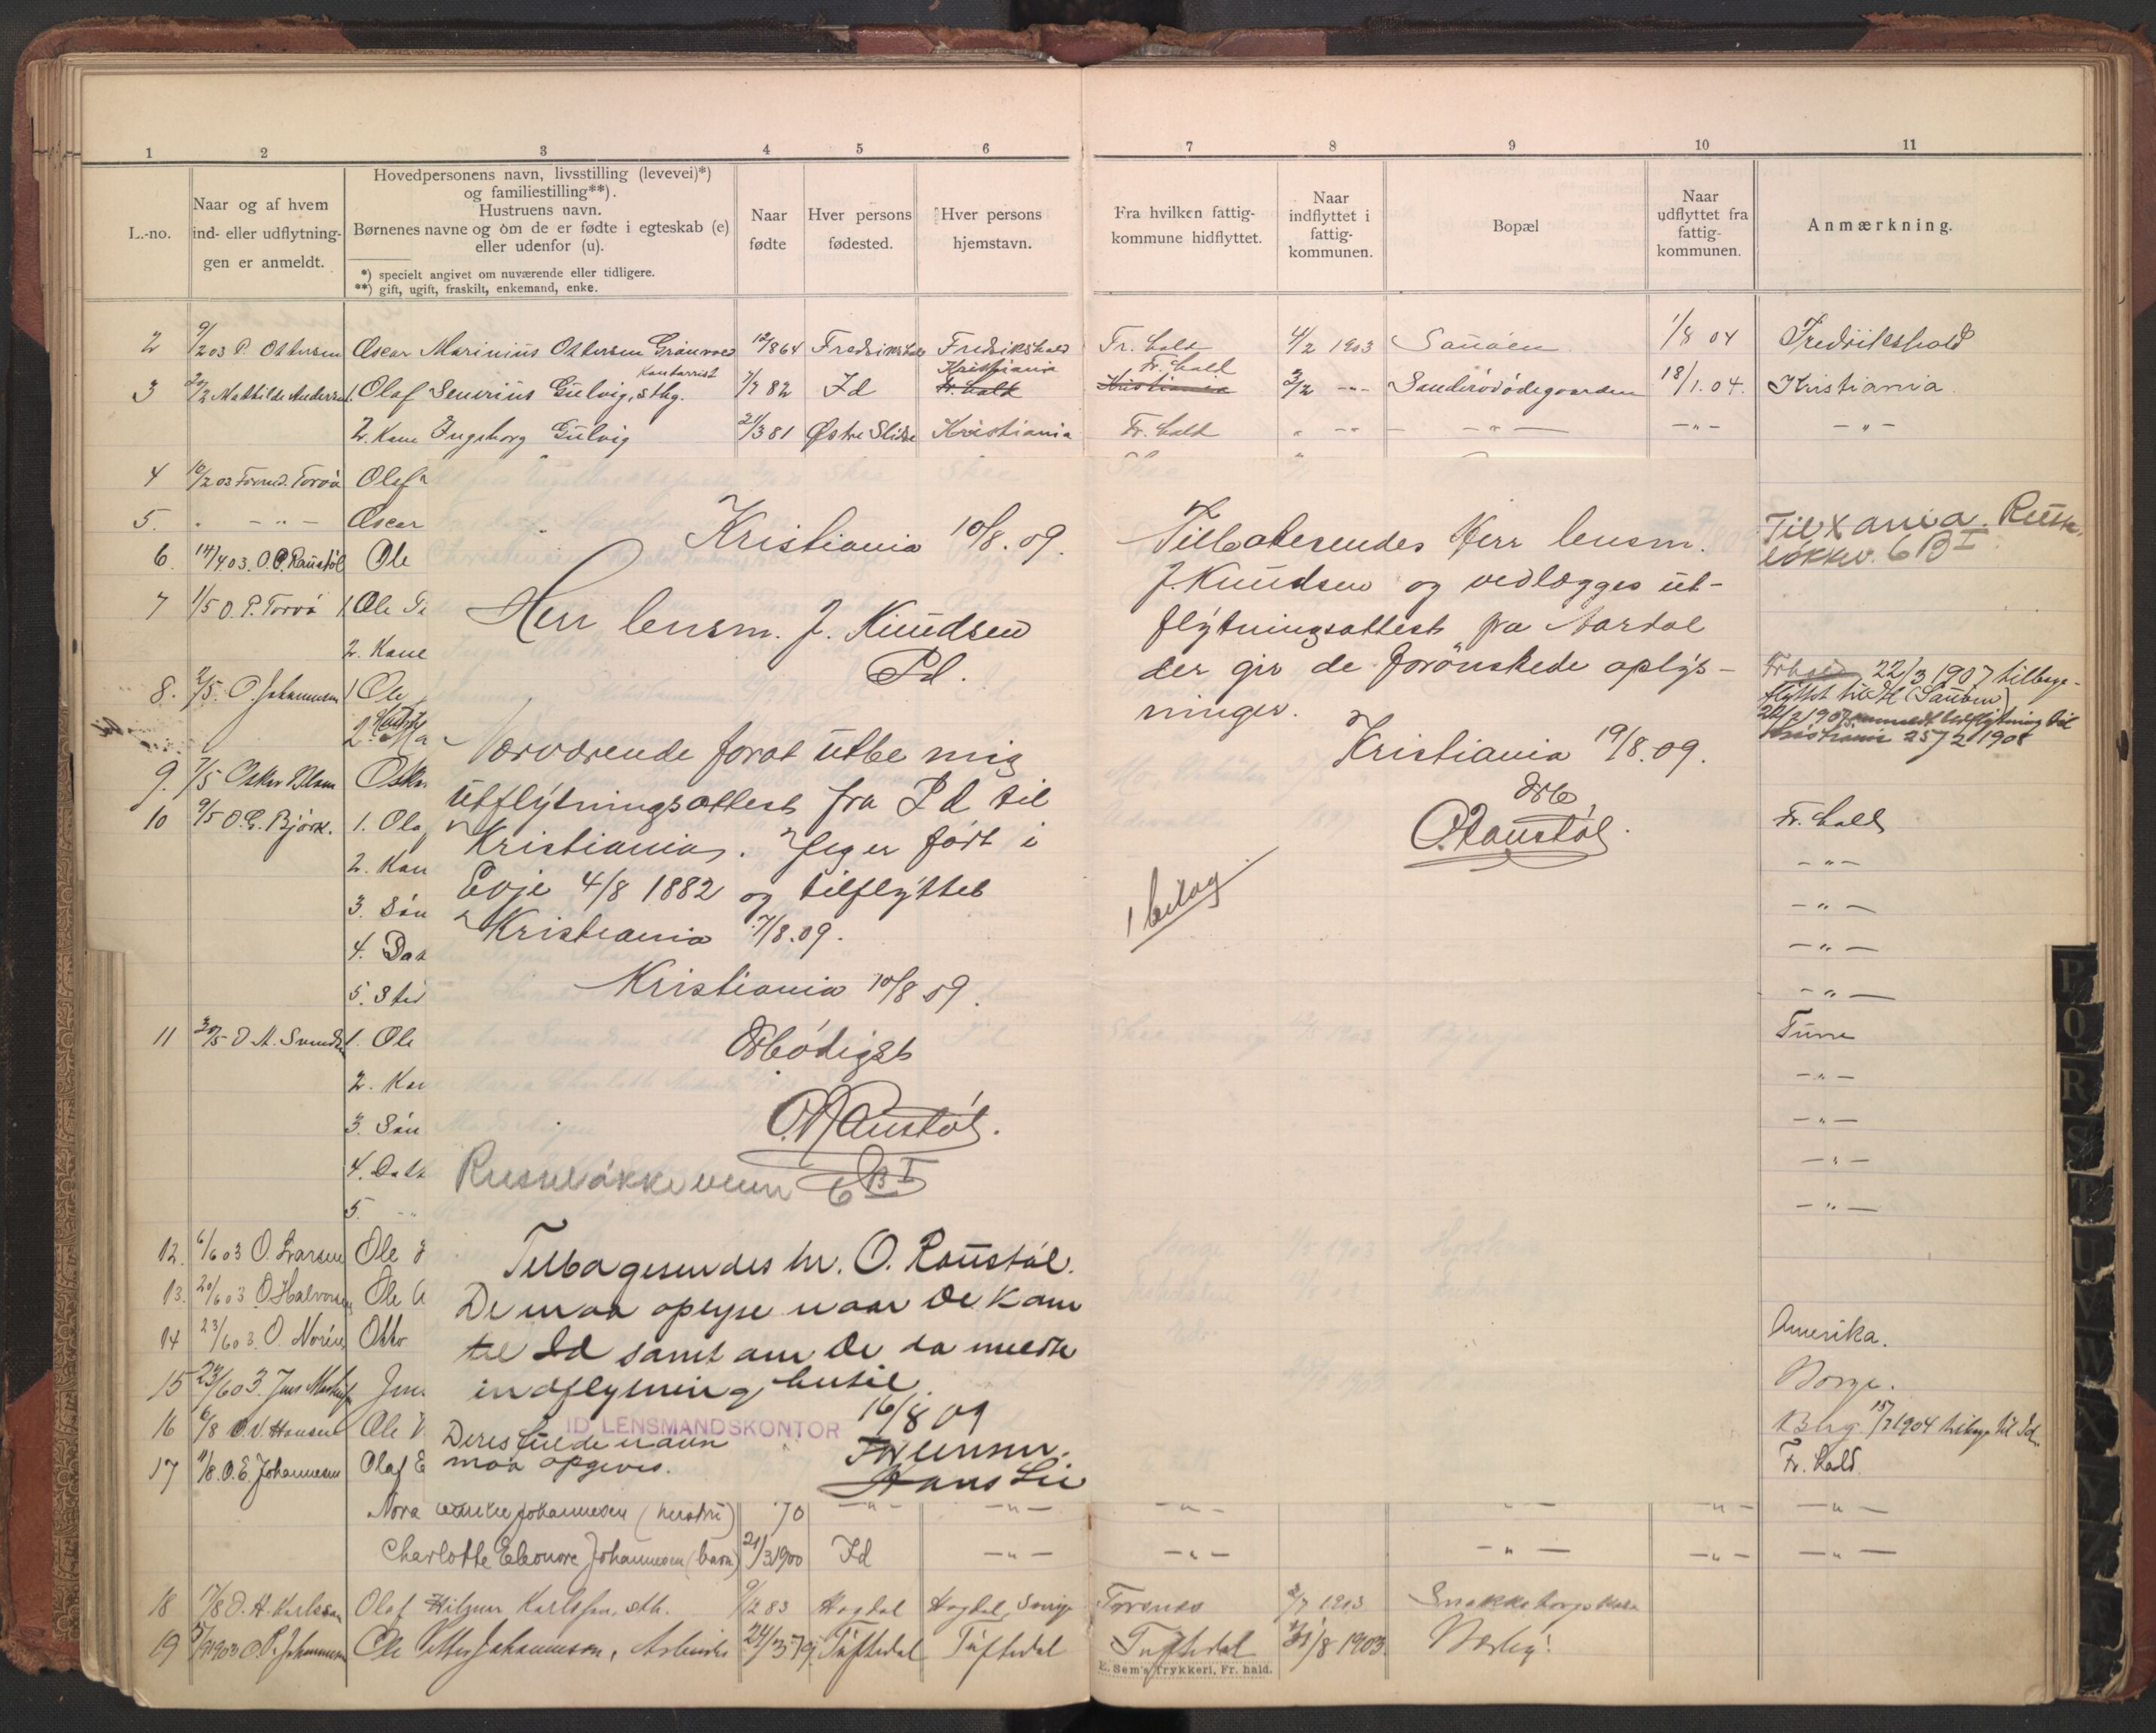 1 2 3 4 5 6 7 8 9 10 11
L.-no.
Naar og af hvem
ind- eller udflytnin-
gen er anmeldt.
Hovedpersonens navn, livsstilling (levevei)*)
og familiestilling**).
Hustruens navn.
Børnenes navne og om de er fødte i egteskab (e)
eller udenfor (u).
*) specielt angivet om nuværende eller tidligere.
**) gift, ugift, fraskilt, enkemand, enke.
Naar
fødte
Hver persons
fødested.
Hver persons
hjemstavn.
Fra hvilken fattig-
kommune hidflyttet.
Naar
indflyttet i
fattig-
kommunen.
Bopæl
Naar
udflyttet fra
fattig-
kommunen.
Anmærkning.
2 9/2 03 P. Ottersen Oscar Marinius Ottersen Grönvold 12/8 64 Fredrikshald Fredrikshald Fr. hald 4/2 1903 Sauöen 1/8 04 Fredrikshald
Kontorrist Kristiania Fr. hald
3 20/2 Mathilde Andersen 1. Olaf Severius Gulvig, sthg. 7/7 82 Id Fr. hald Kristiania 3/2 -"- Sanderödödegaarden 18/1. 04. Kristiania
2. Kone Ingeborg Gulvig 21/3 81 Østre Slidre Kristiania Fr. hald " -"- -"- -"- -"-
4 10/2 03 Formd. Torvö Olaf
5. " -"- Oscar
6. 14/4 03. O. P. Raustöl Ole
7 1/5 O. P. Torvö 1. Ole
2. Kone
8. 2/5. O. Johannesen 1 Ole
2.
9. 7/5 Oskar Oskar
10 9/5 O. G. Björk. 1. Ola
2. Kon
3. Sön
4. Dat
5. Sted
11 30/5 O. A. Svendsen 1. Ole
2. Kon
3. Sön
4. Datt
5. -"-
12. 6/6 03 O. Larsen Ole
13. 20/6 03 O. Halvorsen Ole A
14 23/6 03. O. Norén Otto
15 23/6 03. Jens Jens
16 6/8 O. V. Hansen Ole V
17 11/8. O. E. Johannesen Olaf E
Kristiania 10/8. 09.
Herr lensm. J. Knudsen
Id.
Nærværende forat utbe mig
utflytningsattest fra Id til
Kristiania. Jeg er fört i
Evje 4/8 1882 og tilflyttet
Kristiania 7/8. 09.
Kristiania 10/8 09.
Ærbödigst
O. Raustöl.
Russelökkeveien 6 B I
Tilbagesendes hr. O. Raustöl.
De maa oplyse naar De kom
til Id samt om De da meldte
indflytning hertil.
16/8 09
ID LENSMANDSKONTOR
Deres fulde navn
maa opgives.
Hans Lie
Tilbakesendes Herr lensm.
J. Knudsen og vedlægges ut-
flytningsattest fra Aardal
der gir de forönskede oplys-
ninger.
Kristiania 19/8. 09.
Ærb,
O. Raustöl.
1 bilag.
Til Xania. Russe
lökkv. 6 B I
22/3 1907 tilbage-
flyttet til Id (Sauöen)
Kristiania 25/2 1908
Fr. hald
-"-
-"-
-"-
-"-
Tune
-"-
-"-
-"-
-"-
Amerika.
Borge.
Berg 15/7 1904 tilbage til Id.
Fr. hald
Nora Johannesen (hustru) 70 -"- -"- -"- -"- -"- -"-
Charlotte Eleonore Johannesen (barn) 21/3 1900 Id -"- -"- -"- -"- -"-
18 17/8 O. H. Karlsson Olaf Hilmer Karlsson, sth. 9/2 83 Hogdal Hogdal, Sverige Torsnes 2/7 1903
19 5/9 1903 O. P. Johannesen Ole Petter Johannesen, Arbeider 24/3 79 Tuftedal Tuftedal Tuftedal 31/8 1903. Nærby.
E. Sem's Trykkeri, Fr. hald.
P
Q
R
S
T
U
V
W
X
Y
Z